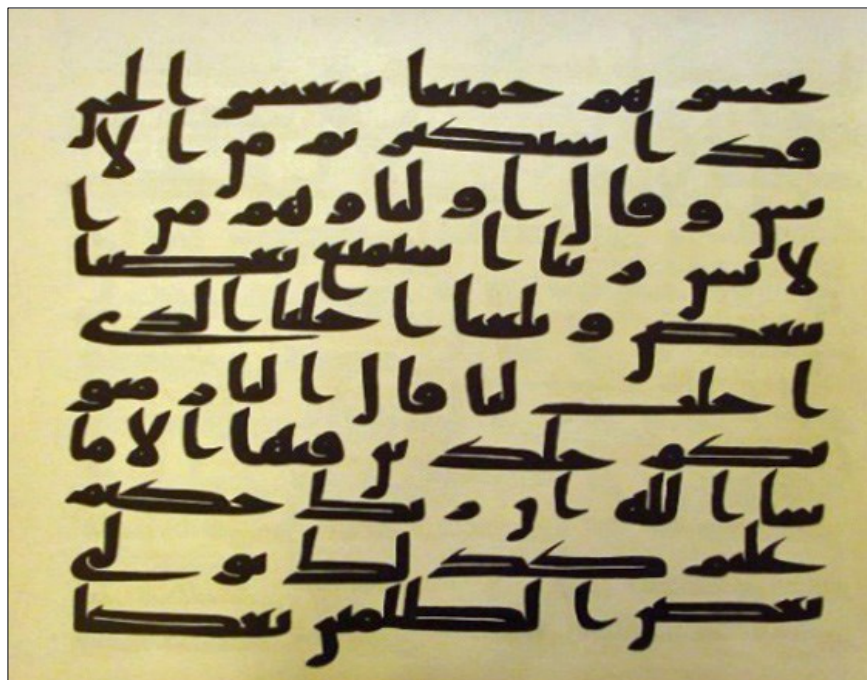 يحشر هم جميعا يمعشر الجن
قد استكثرتم من الا
نس وقال اولياوهم من ا
لانس ربنا استمتع بعضنا
ببعض وبلغنا اجلنا الذي
اجلت لنا قال النار مثو
ىكم خلدين فيها الا ما
شا الله ان ربك حكيم
عليم وكذلك نولي
بعض الظلمين بعضا